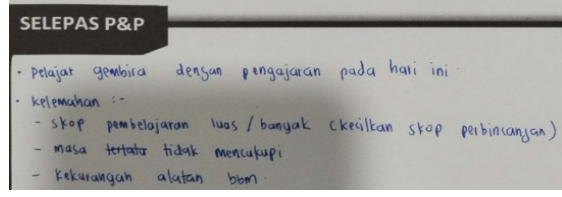 SELEPAS P&P
• Pelajar gembira dengan pengajaran pada hari ini.
• Kelemahan :-
- Skop pembelajaran luas / banyak (kecilkan skop perbincangan)
- masa tertatu tidak mencukupi
- Kekurangan alatan bbm.